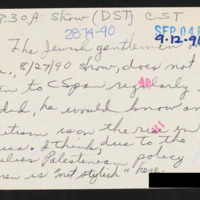 830A Show (DST) CST
2879-90
SEP 04
9-12-90
The Jewish gentlemen
8/27/90 show, does not
to CSpan regularly
he would know
is on the rise in
USA. I think due to the
Palestinian policy
is "not stylish" here.